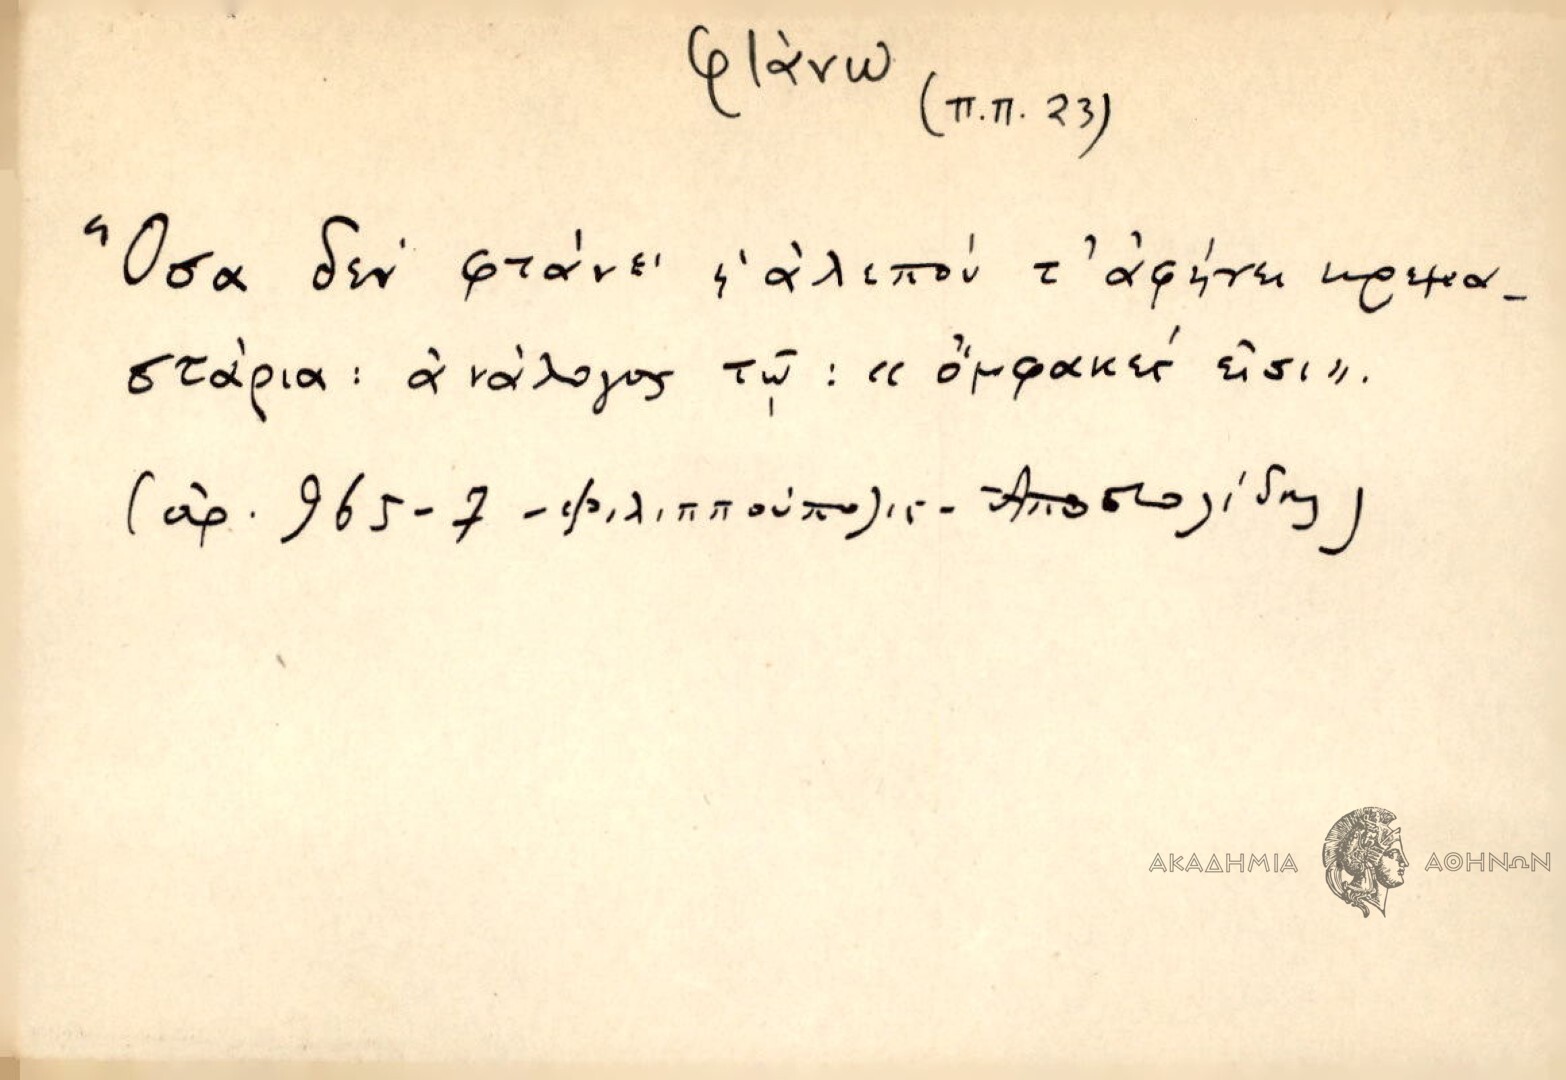 φτάνω
(π.π. 23)
Ὅσα δέν φτάνει ἡ ἀλεπού τ' ἀφήνει κρεμα-
στάρια: ἀνάλογος τῷ: «ὄμφακές εἰσι».
(ἀρ. 965-7 - Φιλιππούπολις - Ἀποστολίδης)
ΑΚΑΔΗΜΙΑ ΑΘΗΝΩΝ